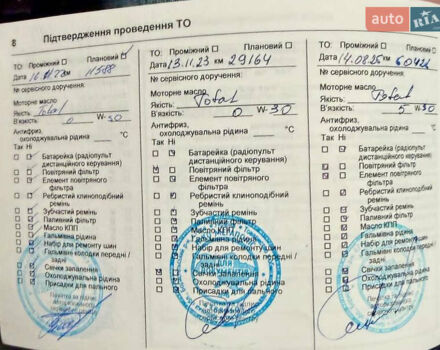 auto RIA
8 Підтвердження проведення ТО
ТО: Проміжний Плановий
Дата км 11388
№ сервісного доручення:
Моторне масло
Якість: Total
В'язкість: 0 W- 30
Антифриз,
охолоджувальна рідина °C
Так Ні
Батарейка (радіопульт
дистанційного керування)
Повітряний фільтр
Елемент повітряного
фільтра
Ребристий клиноподібний
ремінь
Зубчастий ремінь
Паливний фільтр
Масло КПП
Гальмівна рідина
Набір для ремонту шин
Гальмівні колодки передні /
задні
Свічки запалення
Охолоджувальна рідина
Присадки для пального
ТО: Проміжний Плановий
Дата 13.11.23 км 29164
№ сервісного доручення:
Моторне масло
Якість: Total
В'язкість: 0 W- 30
Антифриз,
охолоджувальна рідина °C
Так Ні
Батарейка (радіопульт
дистанційного керування)
Повітряний фільтр
Елемент повітряного
фільтра
Ребристий клиноподібний
ремінь
Зубчастий ремінь
Паливний фільтр
Масло КПП
Гальмівна рідина
Набір для ремонту шин
Гальмівні колодки передні /
задні
Свічки запалення
Охолоджувальна рідина
Присадки для пального
ТО: Проміжний Плановий
Дата 14.08.25 км
№ сервісного доручення:
Моторне масло
Якість: Total
В'язкість: 5 W- 30
Антифриз,
охолоджувальна рідина °C
Так Ні
Батарейка (радіопульт
дистанційного керування)
Повітряний фільтр
Елемент повітряного
фільтра
Ребристий клиноподібний
ремінь
Зубчастий ремінь
Паливний фільтр
Масло КПП
Гальмівна рідина
Набір для ремонту шин
Гальмівні колодки передні /
задні
Свічки запалення
Охолоджувальна рідина
Присадки для пального